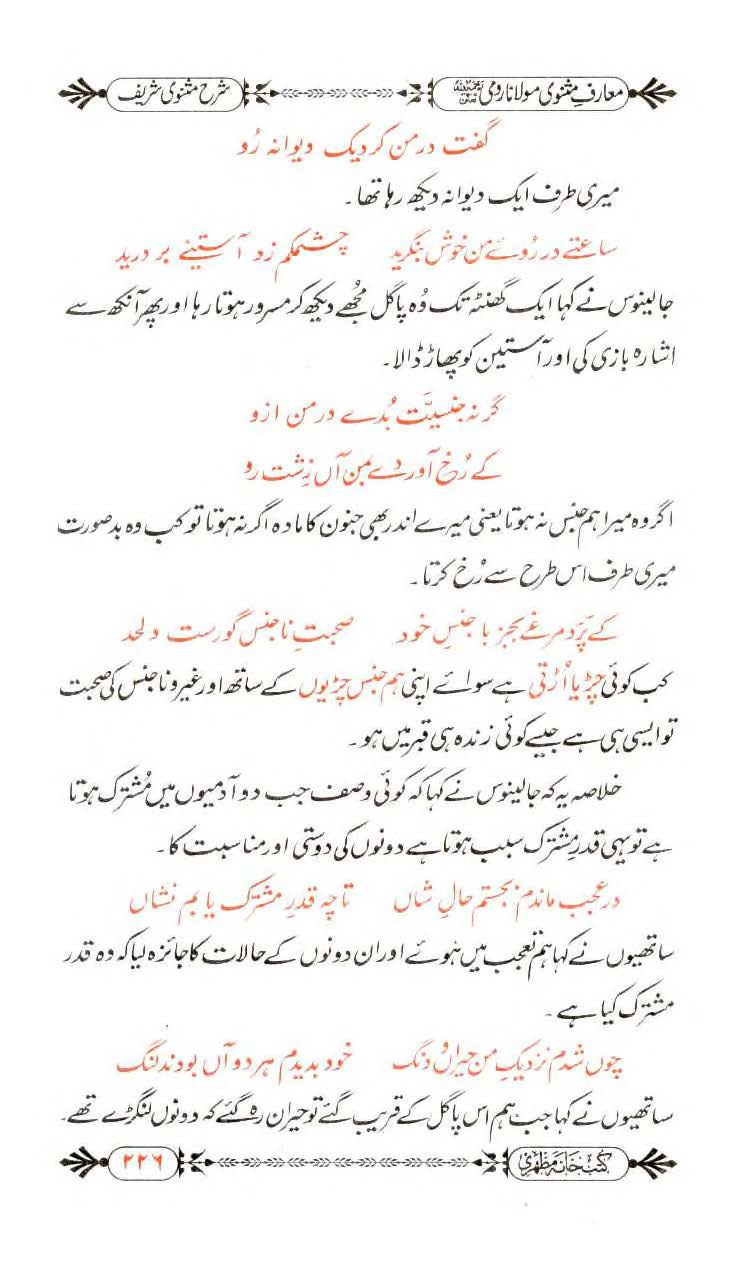 معارفِ مثنوی مولانا رومی رحمۃ اللہ علیہ
شرح مثنوی شریف
گفت در من کرد یک دیوانہ رُو
میری طرف ایک دیوانہ دیکھ رہا تھا۔
ساعتے در رُوئے من خوش بنگرید چشمکم زد آستینے بر درید
جالینوس نے کہا ایک گھنٹہ تک وُہ پاگل مُجھے دیکھ کر مسرور ہوتا رہا اور پھر آنکھ سے
اشارہ بازی کی اور آستین کو پھاڑ ڈالا۔
گر نہ جنسیَّت بُدے در من ازو
کے رُخ آور دے بمن آں زِشت رو
اگر وہ میرا ہم جنس نہ ہوتا یعنی میرے اندر بھی جنون کا مادہ اگر نہ ہوتا تو کب وہ بدصورت
میری طرف اس طرح سے رُخ کرتا۔
کے پَرَد مرغے بجز با جنسِ خود صحبتِ ناجنس گورست و لحد
کب کوئی چڑیا اُڑتی ہے سوائے اپنی ہم جنس چڑیوں کے ساتھ اور غیر و ناجنس کی صحبت
تو ایسی ہی ہے جیسے کوئی زندہ ہی قبر میں ہو۔
خلاصہ یہ کہ جالینوس نے کہا کہ کوئی وصف جب دو آدمیوں میں مُشترک ہوتا
ہے تو یہی قدرِ مشترک سبب ہوتا ہے دونوں کی دوستی اور مناسبت کا۔
در عجب ماندم بجستم حالِ شاں تا چہ قدرِ مشترک یا بم نشاں
ساتھیوں نے کہا ہم تعجب میں ہُوئے اور ان دونوں کے حالات کا جائزہ لیا کہ وہ قدر
مشترک کیا ہے۔
چوں شدم نزدیکِ من حیران و دنگ خود بدیدم ہر دو آں بودند لنگ
ساتھیوں نے کہا جب ہم اس پاگل کے قریب گئے تو حیران رہ گئے کہ دونوں لنگڑے تھے۔
کتب خانہ مظہری
۲۲۶